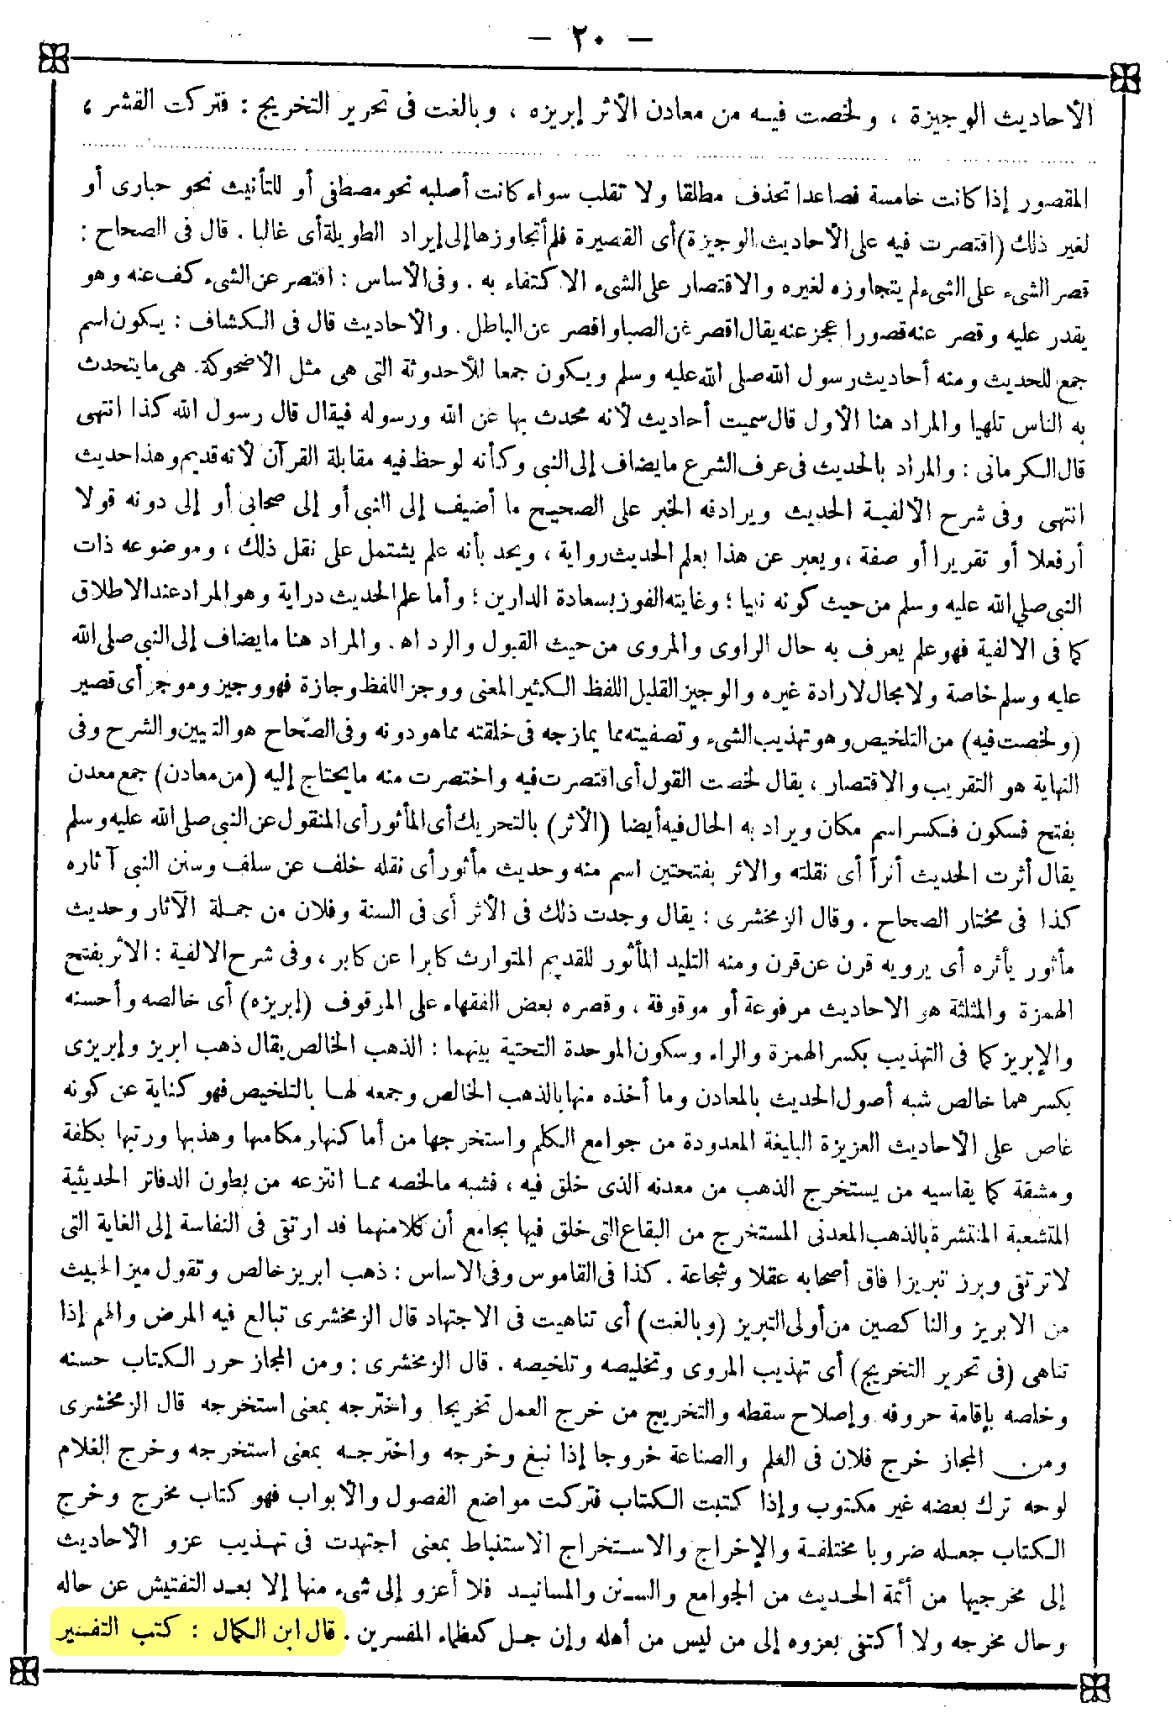 — ٢٠ —
الأحاديث الوجيزة ، ولخصت فيه من معادن الأثر إبريزه ، وبالغت فى تحرير التخريج : فتركت القشر ،
المقصور إذا كانت خامسة فصاعدا تحذف مطلقا ولا تقلب سواء كانت أصلبه نحو مصطفى أو للتأنيث نحو حبارى أو
لغير ذلك (اقتصرت فيه على الأحاديث الوجيزة) أى القصيرة فلم أتجاوزها إلى إيراد الطويلة أى غالبا . قال فى الصحاح :
قصر الشىء على الشىء لم يتجاوزه لغيره والاقتصار على الشىء الاكتفاء به . وفى الأساس : اقتصر عن الشىء كف عنه وهو
يقدر عليه وقصر عنه قصورا عجز عنه يقال اقصر عن الصبا واقصر عن الباطل . والأحاديث قال فى الكشاف : يكون اسم
جمع للحديث ومنه أحاديث رسول الله صلى الله عليه وسلم ويكون جمعا للأحدوثة التى هى مثل الأضحوكة. هى ما يتحدث
به الناس تلهيا والمراد هنا الأول قال سميت أحاديث لأنه محدث بها عن الله ورسوله فيقال قال رسول الله كذا انتهى
قال الكرمانى : والمراد بالحديث فى عرف الشرع ما يضاف إلى النبى وكأنه لوحظ فيه مقابلة القرآن لأنه قديم وهذا حديث
انتهى وفى شرح الألفية الحديث ويرادفه الخبر على الصحيح ما أضيف إلى النبى أو إلى صحابى أو إلى دونه قولا
أرفعلا أو تقريرا أو صفة ، ويعبر عن هذا بعلم الحديث رواية ، ويحد بأنه علم يشتمل على نقل ذلك ، وموضوعه ذات
النبى صلى الله عليه وسلم من حيث كونه نبيا ؛ وغايته الفوز بسعادة الدارين ؛ وأما علم الحديث دراية وهو المراد عند الاطلاق
كما فى الالفية فهو علم يعرف به حال الراوى والمروى من حيث القبول والرد اه. والمراد هنا ما يضاف إلى النبى صلى الله
عليه وسلم خاصة ولا مجال لارادة غيره والوجيز القليل اللفظ الكثير المعنى ووجز اللفظ وجازة فهو وجيز وموجز أى قصير
(ولخصت فيه) من التلخيص وهو تهذيب الشىء وتصفيته مما يمازجه فى خلقته مما هو دونه وفى الصحاح هو التبيين والشرح وفى
النهاية هو التقريب والاقتصار ، يقال لخصت القول أى اقتصرت فيه واختصرت منه ما يحتاج إليه (من معادن) جمع معدن
بفتح فسكون فكسر اسم مكان ويراد به الحال فيه أيضا (الأثر) بالتحريك أى المأثور أى المنقول عن النبى صلى الله عليه وسلم
يقال أثرت الحديث أثرا أى نقلته والاثر بفتحتين اسم منه وحديث مأثور أى نقله خلف عن سلف وسنن النبى آثاره
كذا فى مختار الصحاح . وقال الزمخشرى : يقال وجدت ذلك فى الأثر أى فى السنة وفلان من جملة الآثار وحديث
مأثور يأثره أى يرويه قرن عن قرن ومنه التليد المأثور للقديم المتوارث كابرا عن كابر ، وفى شرح الالفية : الاثر بفتح
الهمزة والمثلثة هو الاحاديث مرفوعة أو موقوفة ، وقصره بعض الفقهاء على المرقوف (إبريزه) أى خالصه وأحسنه
والإبريز كما فى التهذيب بكسر الهمزة والراء وسكون الموحدة التحتية بينهما : الذهب الخالص يقال ذهب ابريز وإبريزى
بكسرهما خالص شبه أصول الحديث بالمعادن وما أخذه منها بالذهب الخالص وجمعه لها بالتلخيص فهو كناية عن كونه
غاص على الأحاديث العزيزة البليغة المعدودة من جوامع الكلم واستخرجها من أماكنها ومكامنها وهذبها ورتبها بكلفة
ومشقة كما يقاسيه من يستخرج الذهب من معدنه الذى خلق فيه ، فشبه ما لخصه مما انتزعه من بطون الدفاتر الحديثية
المتشعبة المنتشرة بالذهب المعدنى المستخرج من البقاع التى خلق فيها بجامع أن كلا منهما قد ارتقى فى النفاسة إلى الغاية التى
لا ترتقى وبرز تبريزا فاق أصحابه عقلا وشجاعة . كذا فى القاموس وفى الاساس : ذهب ابريز خالص وتقول ميز الخبيث
من الابريز والناكصين من أولى التبريز (وبالغت) أى تناهيت فى الاجتهاد قال الزمخشرى تبالغ فيه المرض والهم إذا
تناهى (فى تحرير التخريج) أى تهذيب المروى وتخليصه وتلخيصه . قال الزمخشرى : ومن المجاز حرر الكتاب حسنه
وخلصه بإقامة حروفه وإصلاح سقطه والتخريج من خرج العمل تخريجا واخترجه بمعنى استخرجه قال الزمخشرى
ومن المجاز خرج فلان فى العلم والصناعة خروجا إذا نبغ وخرجه واخترجه بمعنى استخرجه وخرج الغلام
لوحه ترك بعضه غير مكتوب وإذا كتبت الكتاب فتركت مواضع الفصول والأبواب فهو كتاب مخرج وخرج
الكتاب جعله ضروبا مختلفة والإخراج والاستخراج الاستنباط بمعنى اجتهدت فى تهذيب عزو الأحاديث
إلى مخرجيها من أئمة الحديث من الجوامع والسنن والمسانيد فلا أعزو إلى شىء منها إلا بعد التفتيش عن حاله
وحال مخرجه ولا أكتفى بعزوه إلى من ليس من أهله وإن جل كعظماء المفسرين . قال ابن الكمال : كتب التفسير